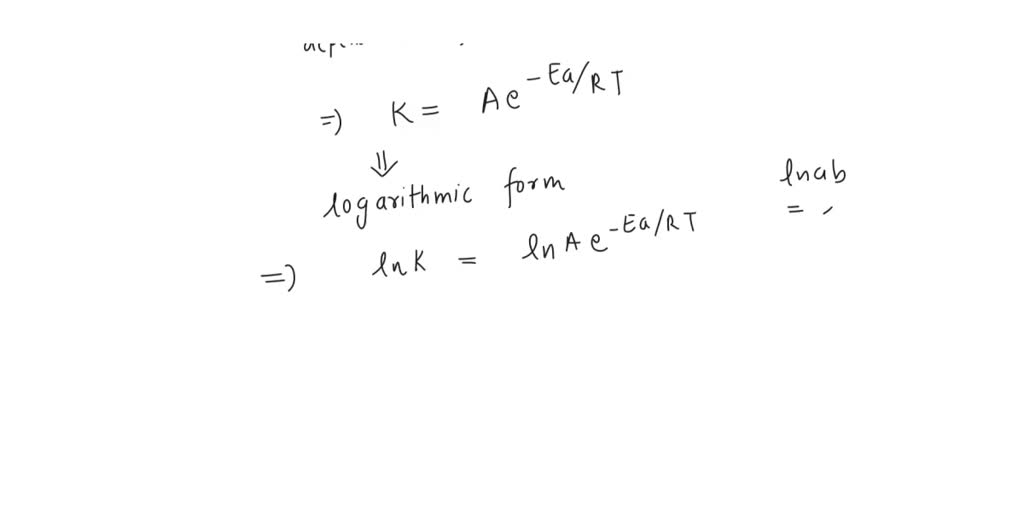 =) K = Ae^-Ea/RT
⇓
logarithmic form
lnab
=
=) lnK = lnAe^-Ea/RT